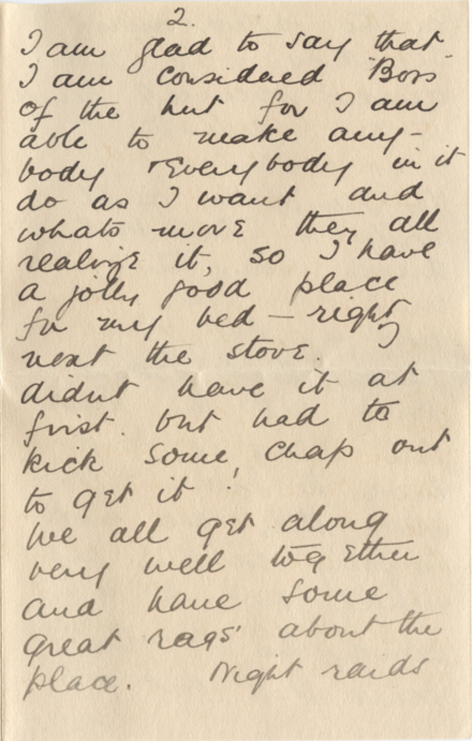 2.
I am glad to say that
I am considered "Boss"
of the hut for I am
able to make any-
body & Everybody in it
do as I want and
whats more they all
realize it, so I have
a jolly good place
for my bed – right
next the stove. I
didnt have it at
first. but had to
kick some chap out
to get it!
We all get along
very well together
and have some
great 'rags' about the
place. Night raids